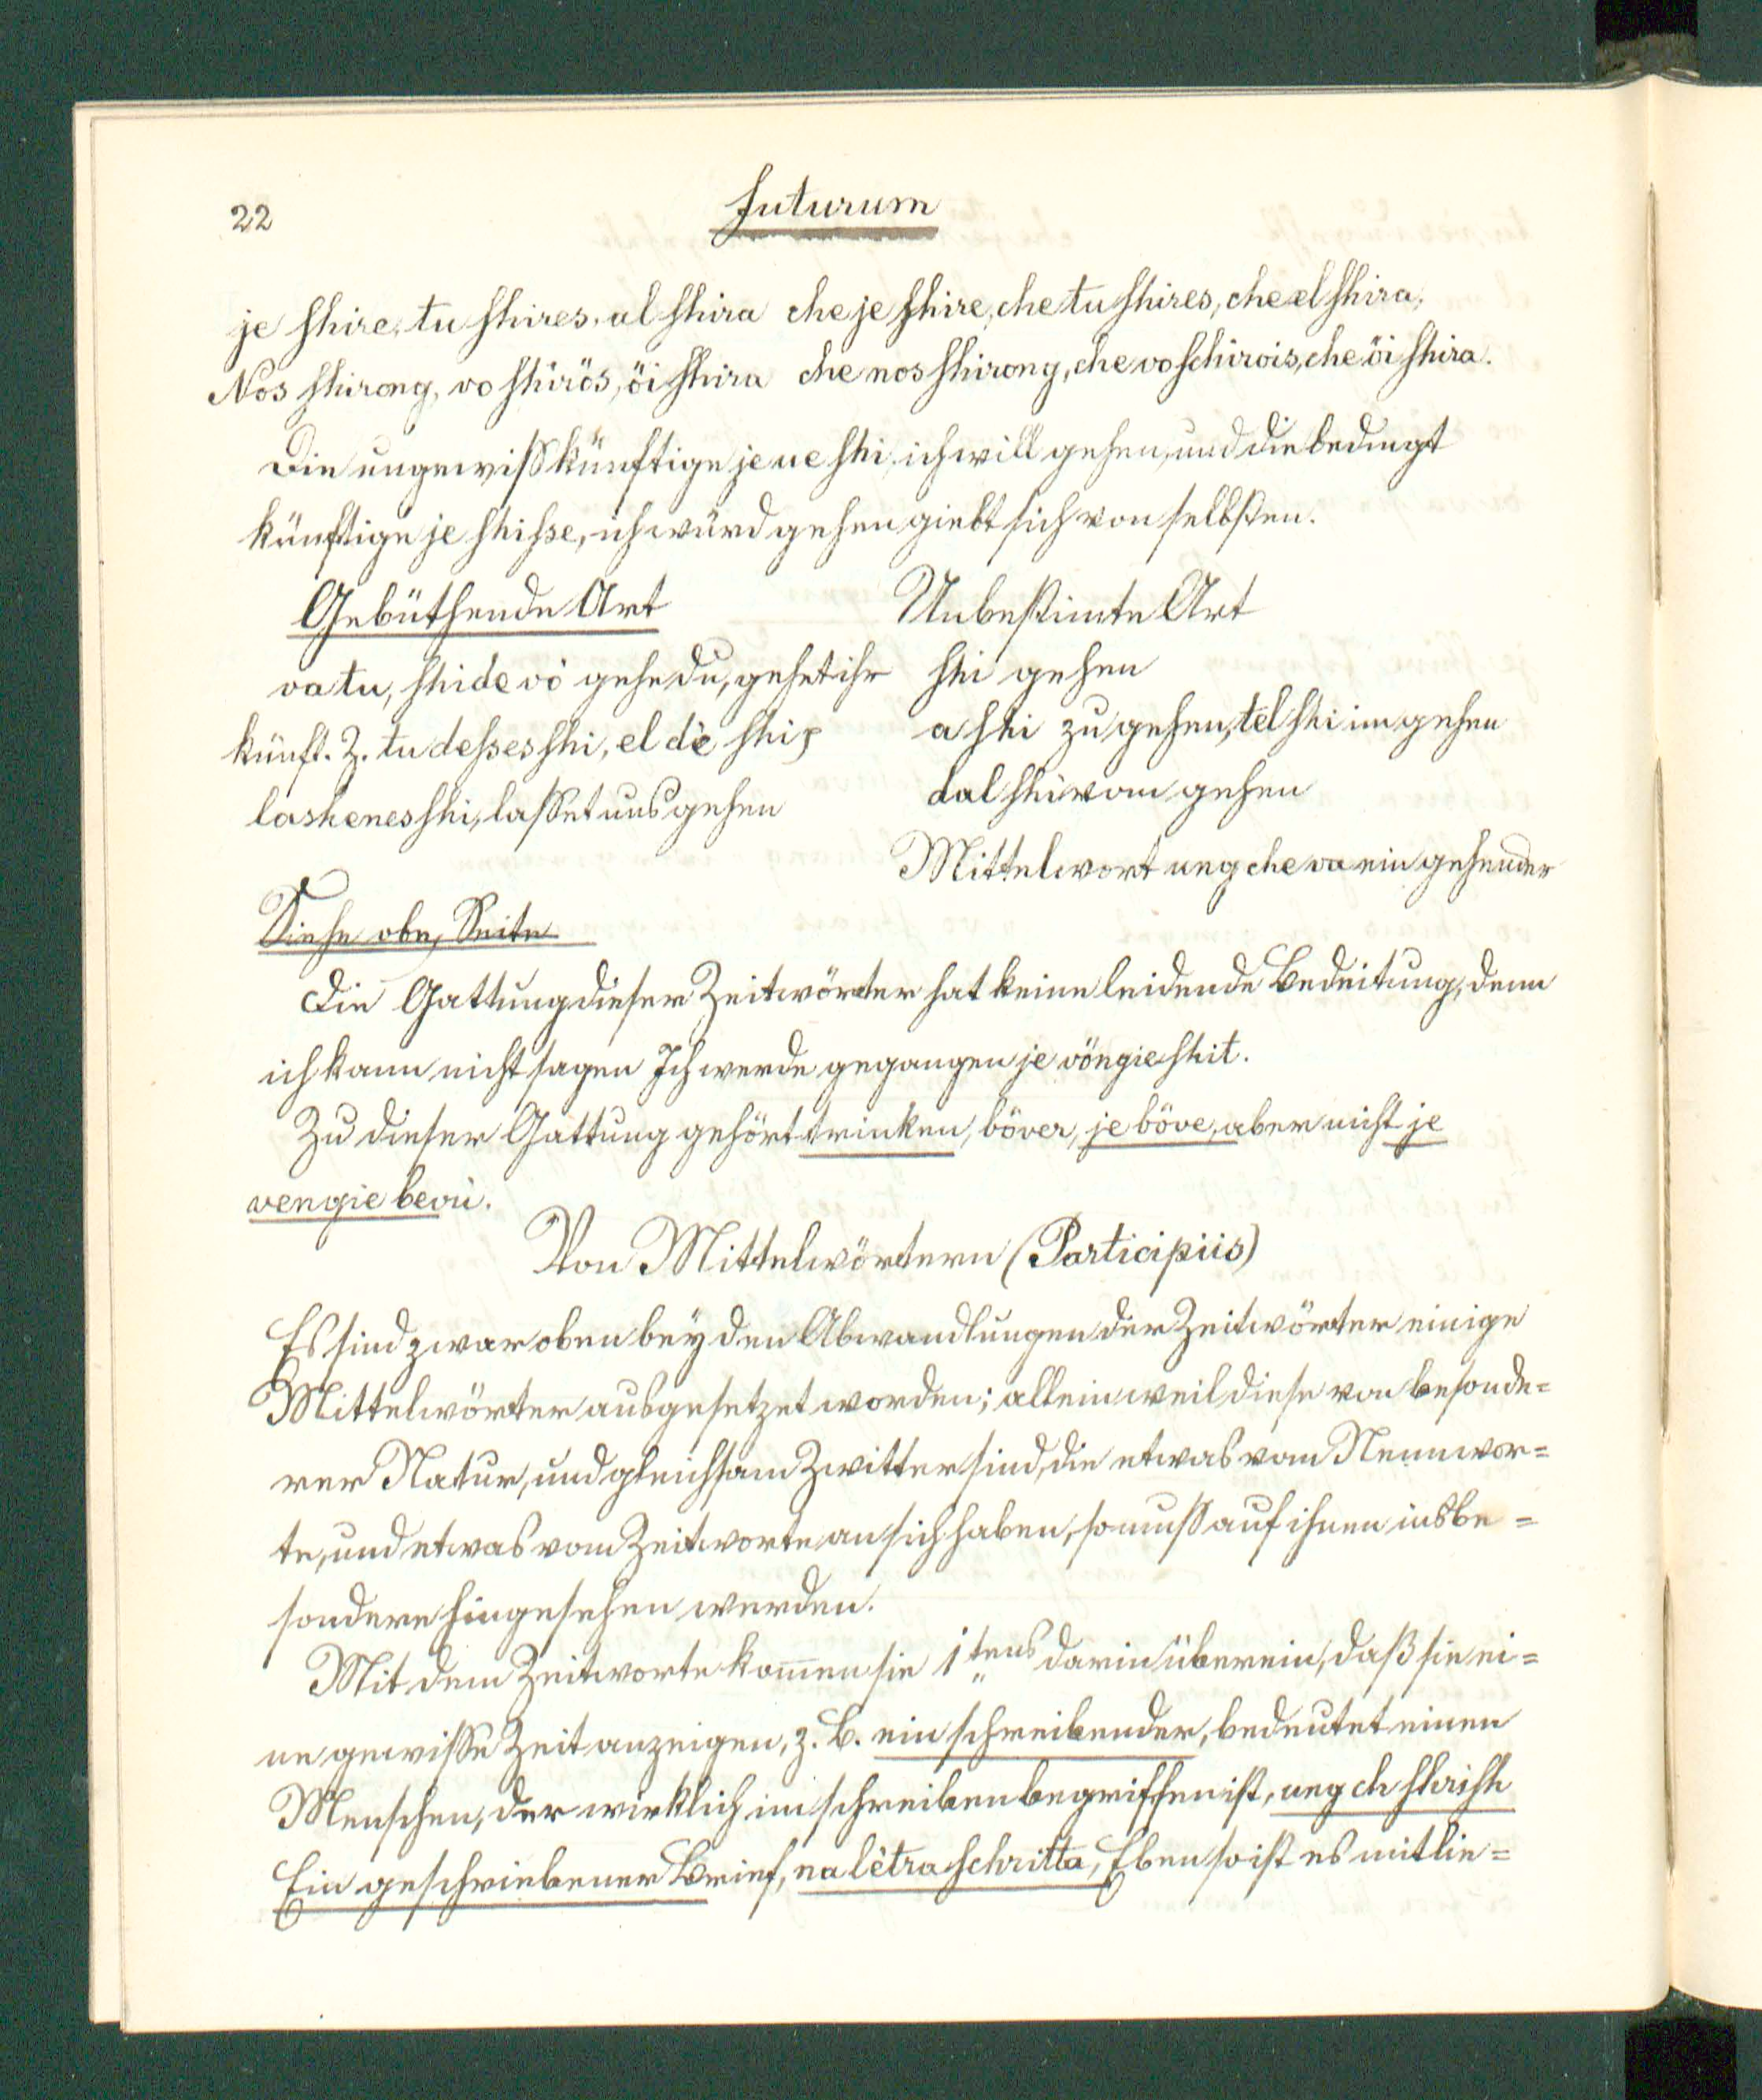 22
Futurum
je shire, tu shires, al shira che je shire, che tu shires, che el shira,
Nos shirong, vo shirös, öi shira che nos shirong, che vo schirois, che öi shira.
Die ungewiß künftige je ue shi, ich will gehen, und die bedingt
künftige je shihse, ich würd gehen giebt sich von selbsten.
Gebüthende Art
Unbestimte Art
va tu, shide vò gehe du, gehet ihr
shi gehen
künft. Z. tu dehses shi, el dè shi
a shi zu gehen, tel shi im gehen
laskenes shi, lasset uns gehen
dal shi vom gehen
Mittelwort ung che va ein gehender
Siehe obe, Seite
Die Gattung dieser Zeitwörter hat keine leidende Bedeitung, denn
ich kann nicht sagen Ich werde gegangen je vöngie shit.
Zu dieser Gattung gehört trinken, böver, je böve, aber nicht je
vengie bevù.
Von Mittelwörtern (Participiis)
Es sind zwar oben bey den Abwandlungen der Zeitwörter einige
Mittelwörter ausgesetzet worden; allein weil diese von besonde=
rer Natur, und gleichsam Zwitter sind, die etwas vom Nennwor=
te, und etwas vom Zeitworte an sich haben, so muß auf ihnen insbe=
sondere hingesehen werden.
Mit dem Zeitworte kom̅en sie 1tens darin überein, daß sie ei=
ne gewisse Zeit anzeigen, z. B. ein schreibender, bedeutet einen
Menschen, der wirklich im schreiben begriffen ist, ung ch shrish
Ein geschriebener Brief, na lètra schritta, Eben so ist es mit lie=